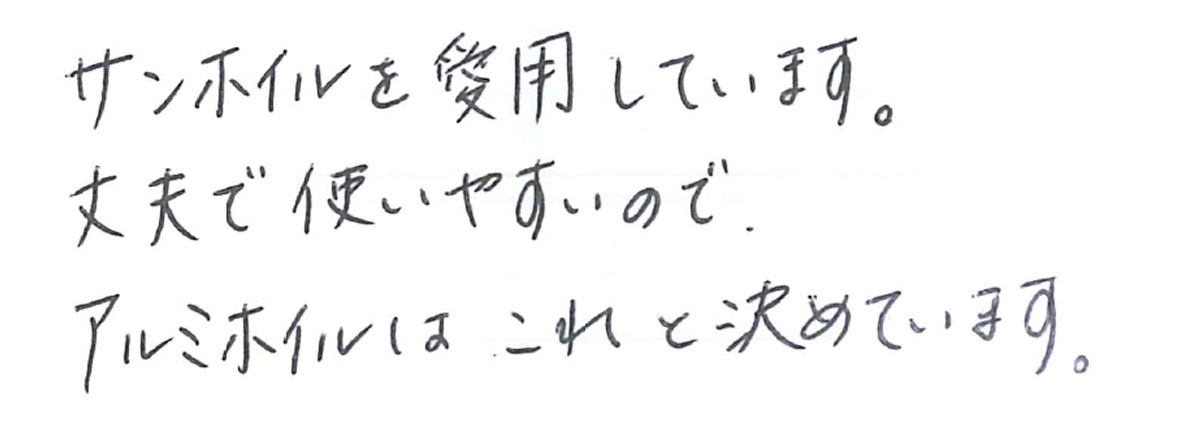 サンホイルを愛用しています。
丈夫で使いやすいので、
アルミホイルはこれと決めています。